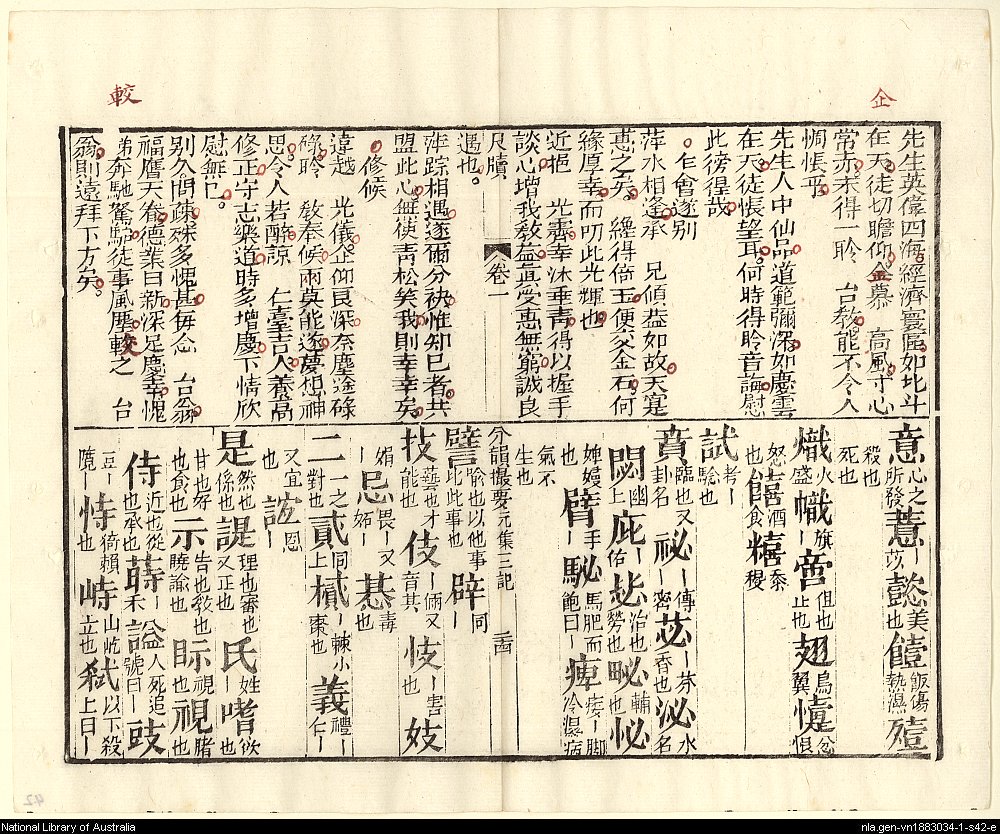 企
較
先生英偉四海經濟寰區如北斗
在天徒切瞻仰企慕 高風寸心
常赤未得一聆 台教能不令人
惆悵乎
先生人中仙品道範彌深如慶雲
在天徒悵望耳何時得聆音誨慰
此徬徨哉
乍會遂別
萍水相逢承 兄傾蓋如故天寔
惠之矣 纔得倍玉便交金石何
緣厚幸而叨此光輝也
近挹 光霽幸沐垂青得以握手
談心增我教益眞受惠無窮誠良
遇也
尺牘
卷一
萍踪相遇遂爾分袂惟知已者共
盟此心無使青松笑我則幸幸矣
修候
違越 光儀企仰良深奈塵途碌
碌聆 敎奉候兩莫能遂夢想神
思令人若醉諒 仁臺吉人養高
修正守志樂道時多增慶下情欣
慰無已
別久問疎殊多愧甚每念 台翁
福膺天眷德業日新深足慶幸愧
弟奔馳駑駘徒事風塵較之 台
翁則遠拜下方矣
意心之所發薏苡懿美也饐飯傷熱濕殪
殺也死也
熾火盛幟旗啻但也止也翅鳥翼懥忿恨
怒饎酒食糦黍稷
也
試考驗也
賁臨也又卦名祕傳密苾芬香也泌水名
閟幽上庇佑毖治也勞也畂輔也怭
媟嫚也臂手馝馬肥而飽曰痺痿脚冷濕病
氣不生也
分韻撮要元集三記
譬喻也以他事比此事也辟同
技藝也才能也伎倆又音其忮害也妓
娟忌畏又妬惎毒也
二一之對也貳同上樲棘小棗也義禮仁
又宜也誼恩
是然也係也諟理也審也又正也氏姓嗜欲也
甘也好也食也示告也敎也曉諭也眎視也視睹也
侍近也從也承也蒔禾諡人死追號曰豉
豆隌恃倚賴也峙山屹立也弒以下殺上曰
National Library of Australia
nla.gen-vn1883034-1-s42-e
42